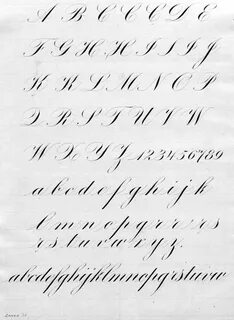 A B C C C D E
F G H H I I J
K K L M N O P
Q R S T U V W
W X Y Z 123456789
a b c d e f g h i j k
l m n o p q r r r s
r s t u v w x y z.
abcdefghijklmnopqrstuvw